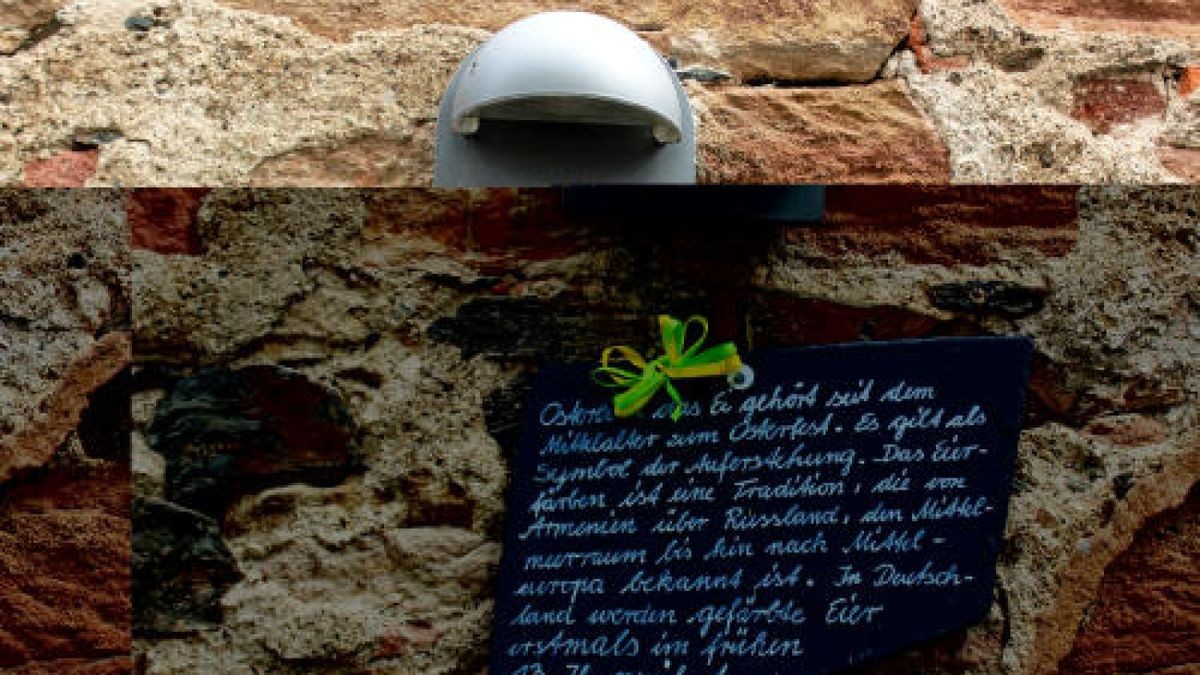 das Ei gehört seit dem
Mittelalter zum Osterfest. Es gilt als
Symbol der Auferstehung. Das Eier-
färben ist eine Tradition, die von
Armenien über Russland, den Mittel-
meerraum bis hin nach Mittel-
europa bekannt ist. In Deutsch-
land werden gefärbte Eier
erstmals im frühen
13.